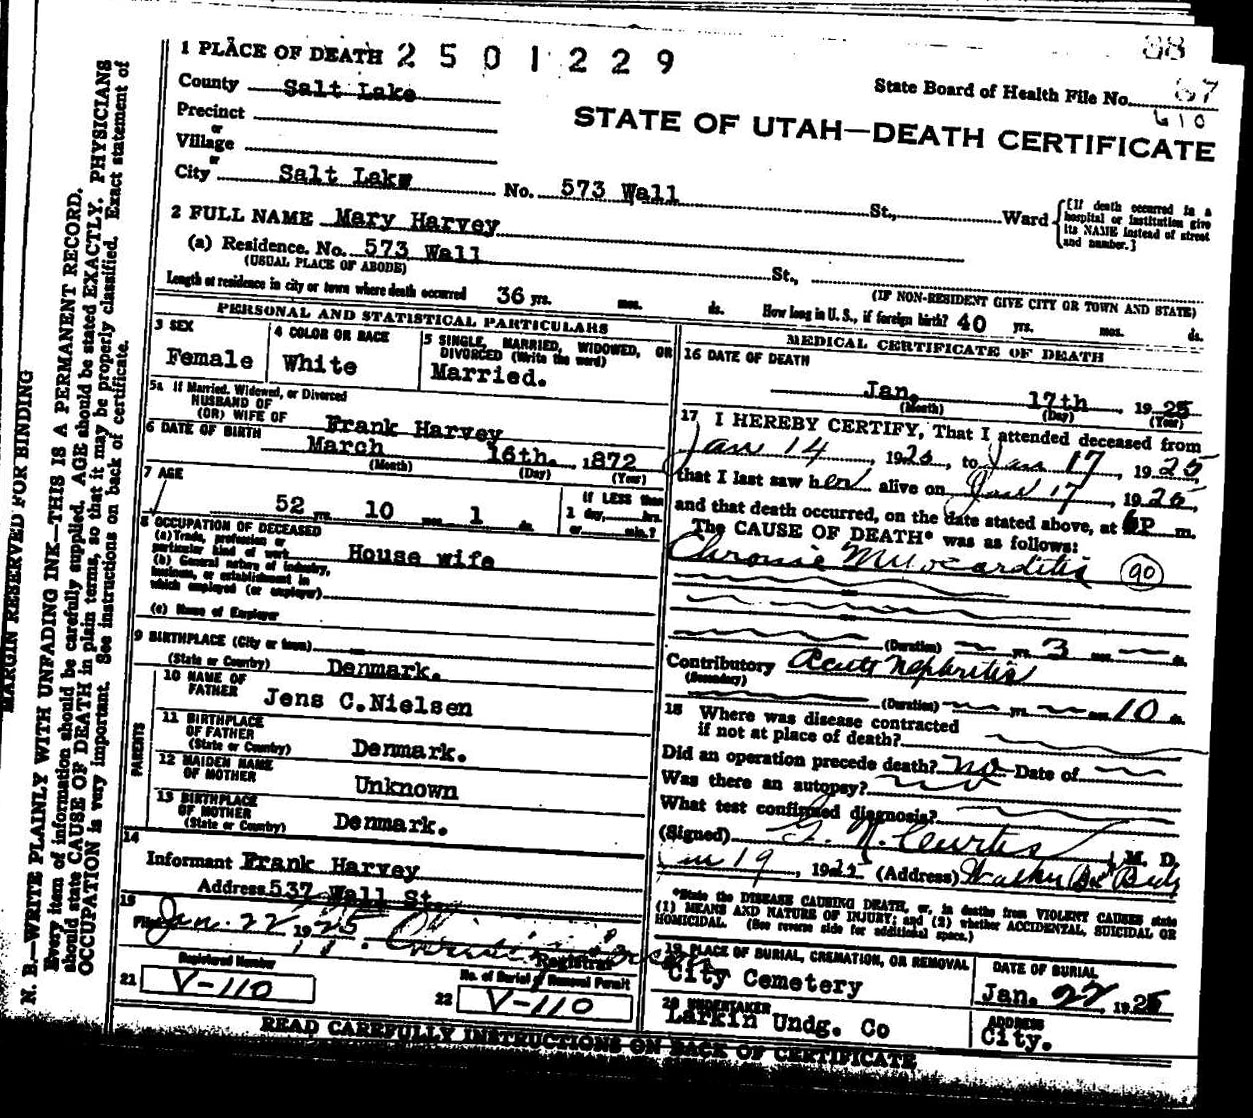 88
1 PLACE OF DEATH 2 5 0 1 2 2 9
State Board of Health File No. 67
610
County Salt Lake
STATE OF UTAH—DEATH CERTIFICATE
Precinct
or
Village
or
City Salt Lake No. 573 Wall St., Ward
[If death occurred in a hospital or institution give its NAME instead of street and number.]
2 FULL NAME Mary Harvey
(a) Residence. No. 573 Wall St.,
(USUAL PLACE OF ABODE)
(IF NON-RESIDENT GIVE CITY OR TOWN AND STATE)
Length of residence in city or town where death occurred 36 yrs. mos. ds. How long in U. S., if foreign birth? 40 yrs. mos. ds.
PERSONAL AND STATISTICAL PARTICULARS
3 SEX
Female
4 COLOR OR RACE
White
5 SINGLE, MARRIED, WIDOWED, OR DIVORCED (Write the word)
Married.
5a If Married, Widowed, or Divorced
HUSBAND OF
(OR) WIFE OF Frank Harvey
6 DATE OF BIRTH March 16th. 1872
(Month) (Day) (Year)
7 AGE
52 yrs. 10 mos. 1 ds.
If LESS than
1 day, hrs.
or min.?
8 OCCUPATION OF DECEASED
(a) Trade, profession or
particular kind of work House wife
(b) General nature of industry,
business, or establishment in
which employed (or employer)
(c) Name of Employer
9 BIRTHPLACE (City or town)
(State or Country) Denmark.
PARENTS
10 NAME OF
FATHER Jens C.Nielsen
11 BIRTHPLACE
OF FATHER
(State or Country) Denmark.
12 MAIDEN NAME
OF MOTHER Unknown
13 BIRTHPLACE
OF MOTHER
(State or Country) Denmark.
14
Informant Frank Harvey
Address 537 Wall St.
15
Filed Jan. 22 1925
Registrar
Registered Number
21 V-110
No. of Burial or Removal Permit
22 V-110
MEDICAL CERTIFICATE OF DEATH
16 DATE OF DEATH
Jan. 17th 1925
(Month) (Day) (Year)
17 I HEREBY CERTIFY, That I attended deceased from
Jan 14, 1925, to Jan 17, 1925
that I last saw her alive on Jan 17, 1925,
and that death occurred, on the date stated above, at 6P m.
The CAUSE OF DEATH* was as follows:
Chronic Myocarditis 90
(Duration) yrs. 3 mos. ds.
Contributory Acute Nephritis
(Secondary)
(Duration) yrs. mos. 10 ds.
18 Where was disease contracted
if not at place of death?
Did an operation precede death? no Date of
Was there an autopsy? no
What test confirmed diagnosis?
(Signed) G. N. Curtis, M. D.
Jan 19, 1925 (Address) Walker Bk Bldg
*State the DISEASE CAUSING DEATH, or, in deaths from VIOLENT CAUSES state
(1) MEANS AND NATURE OF INJURY; and (2) whether ACCIDENTAL, SUICIDAL OR
HOMICIDAL. (See reverse side for additional space.)
19 PLACE OF BURIAL, CREMATION, OR REMOVAL
City Cemetery
DATE OF BURIAL
Jan. 22, 1925
20 UNDERTAKER
Larkin Undg. Co
ADDRESS
City.
READ CAREFULLY INSTRUCTIONS ON BACK OF CERTIFICATE
MARGIN RESERVED FOR BINDING
N. B.—WRITE PLAINLY WITH UNFADING INK—THIS IS A PERMANENT RECORD.
Every item of information should be carefully supplied. AGE should be stated EXACTLY. PHYSICIANS
should state CAUSE OF DEATH in plain terms, so that it may be properly classified. Exact statement of
OCCUPATION is very important. See instructions on back of certificate.